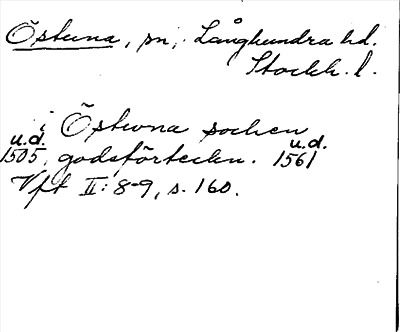 Östuna, sn, Långhundra hd.
Stockh. l.
i Östwna sochen
u.d. 1505, godsförteckn. u.d. 1561
Vft II: 8-9, s. 160.